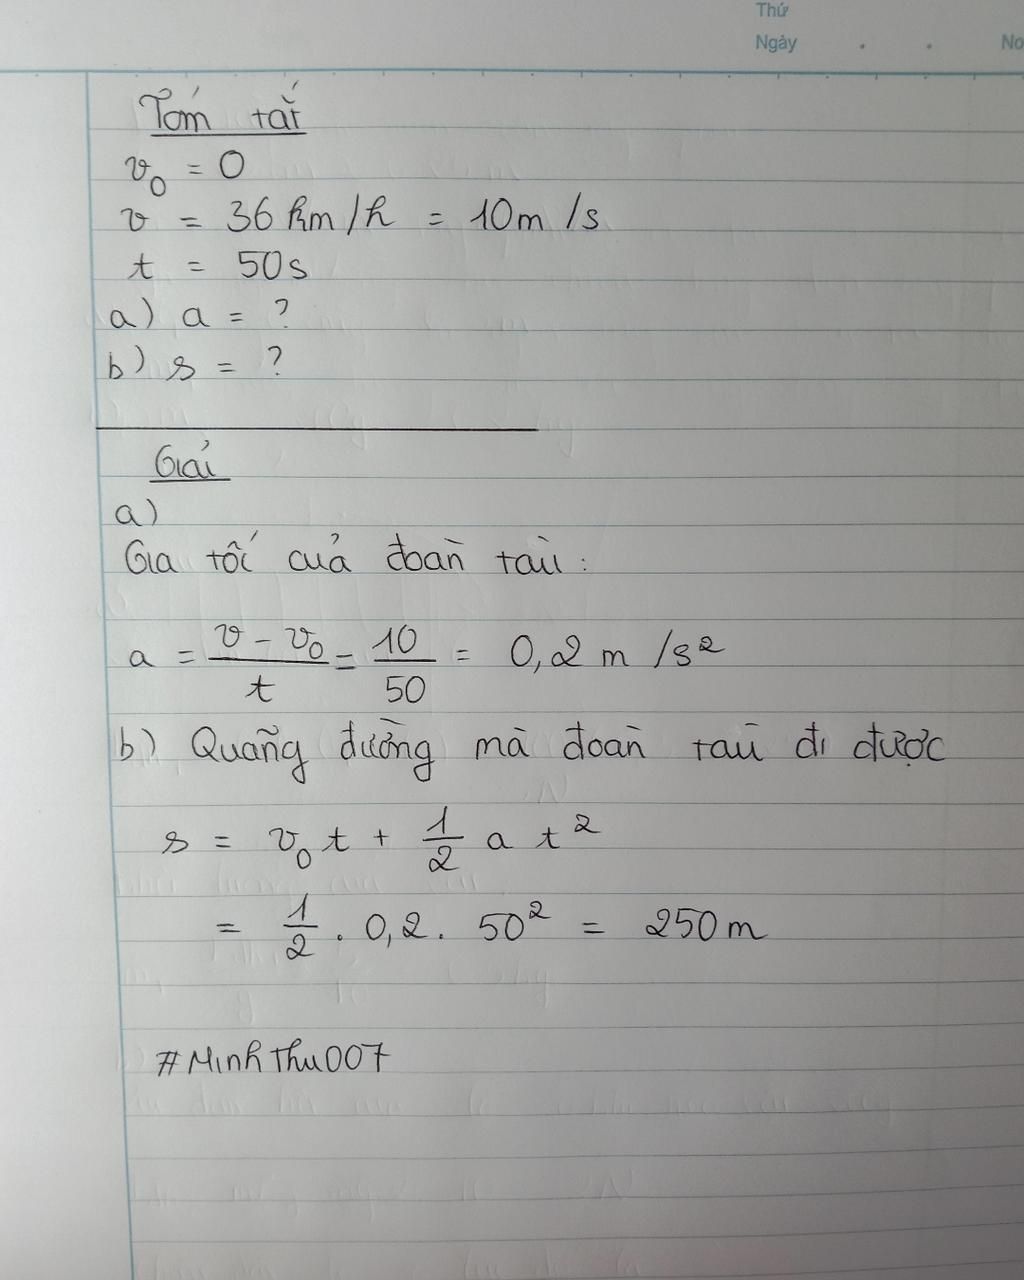 Thứ
Ngày . . No
Tóm tắt
v₀ = 0
v = 36 km/h = 10m/s
t = 50s
a) a = ?
b) s = ?
Giải
a)
Gia tốc của đoàn tàu :
a = (v - v₀)/t = 10/50 = 0,2 m/s²
b) Quãng đường mà đoàn tàu đi được
s = v₀t + 1/2 a t²
= 1/2 . 0,2 . 50² = 250m
#MinhThu007